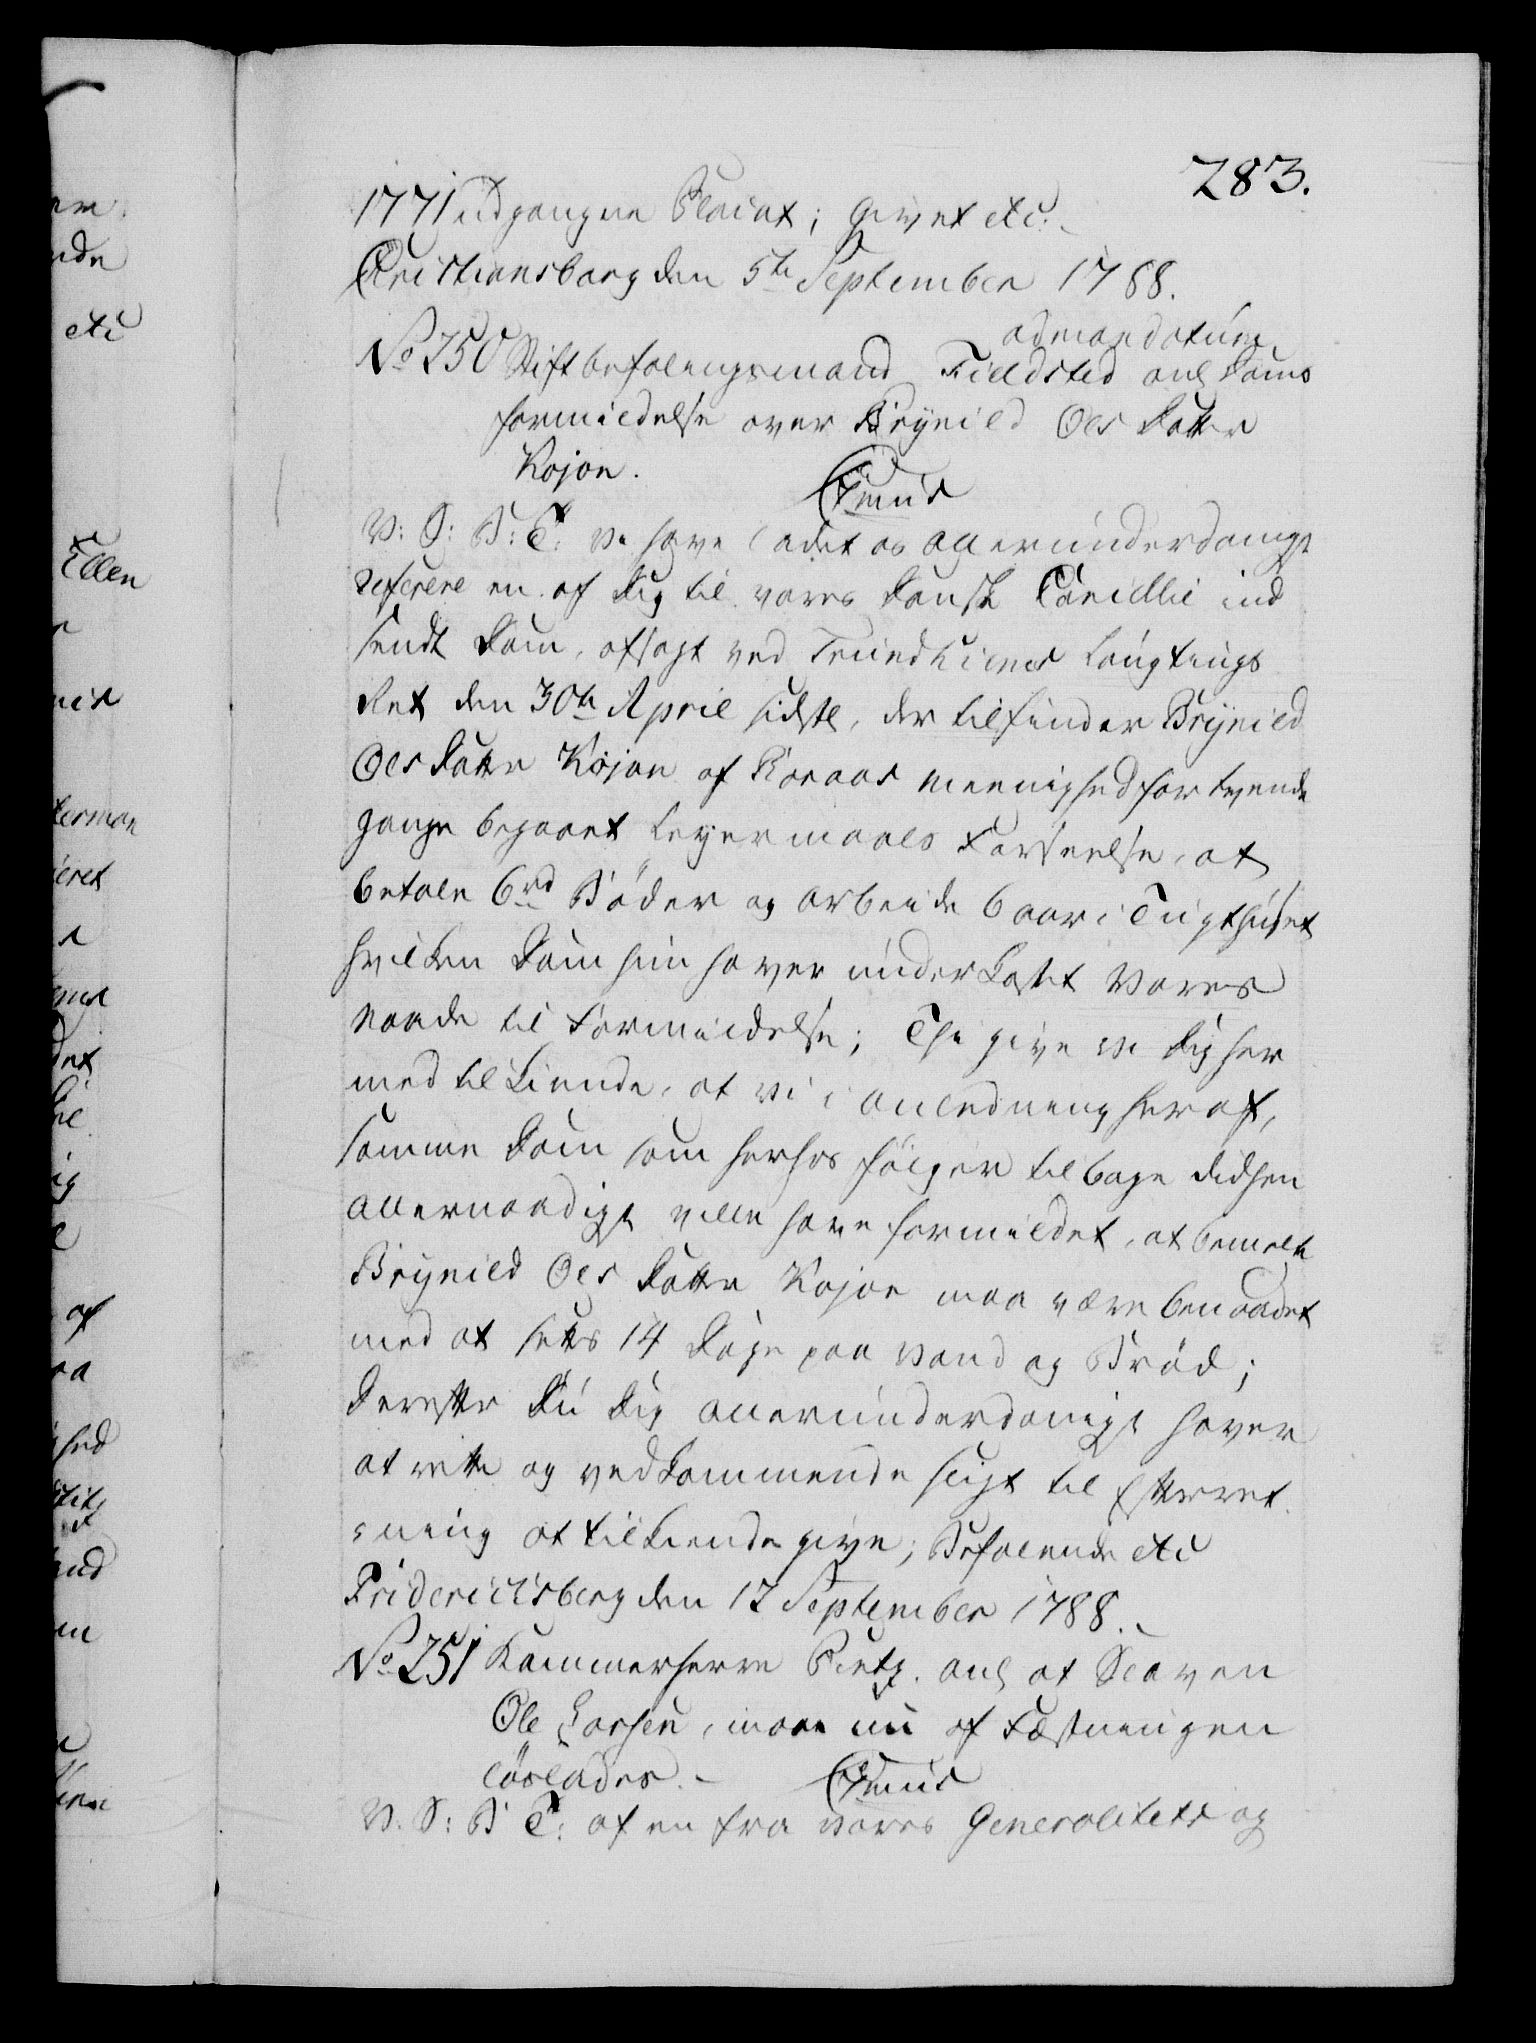 283.
1771 udgangne Placat; Givet etc:
Christiansborg den 5te September 1788.
admandatum
No 250 Stiftbefalingsmand Fieldsted anl Doms
formildelse over Brynild Ols Datter
Kojon.
C7mus
V: S: B: T: Vi have ladet os allerunderdanigst
referere en af Dig til vores Danske Cancellie ind
sendt Dom, afsagt ved Trundhiems laugtings
Ret den 30te April sidstl, der tilfinder Brynild
Ols datter Kojon af Roraas Meenighed for tvende
gange begaaet Leyermaals Forseelse, at
betale 6 rd Bøder og arbeide 6 aar i Tugthuset
hvilken Dom hun haver underkastet Vores
Naade til Formildelse; Thi give vi Dig her
med tilkiende, at vi i anledning heraf,
samme Dom som herhos følger tilbage didhen
allernaadigst ville have formildet, at bemelte
Brynild Ols Datter Kojon maa være benaadet
med at settes 14 Dage paa Vand og Brød;
Derefter Du Dig allerunderdanigst haver
at rette og vedkommende sligt til Efterret
ning at tilkiendegive; Befalende etc
Fridericksberg den 12 September 1788.
No 251 Kammerherre anl at Slaven
Ole Larsen, maae nu af Fæstningen
løslades.- C7mus
V. S: B T: af en fra vores Generalitets og